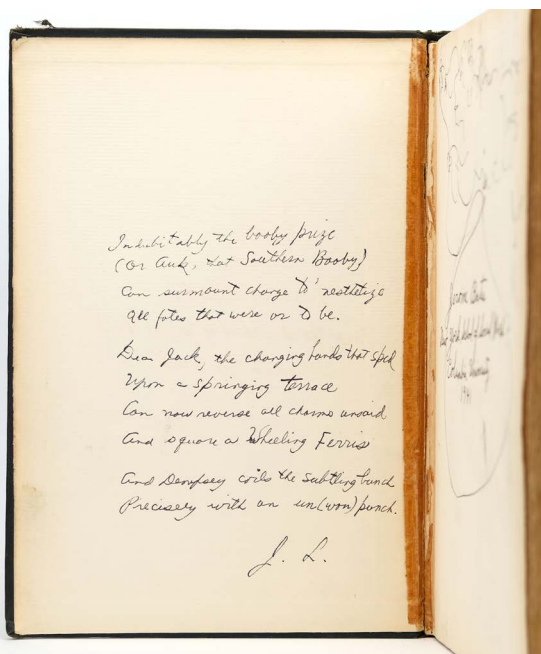 Indubitably the booby prize
(Or Auk, that Southern Booby)
Can surmount change to 'nesthetize
All fates that were or to be.
Dear Jack, the changing hands that sped
Upon a springing terrace
Can now reverse all charms unsaid
And square a Wheeling Ferris
And Dempsey coils the subtling bunch
Precisely with an un(won) punch.
J. L.
University